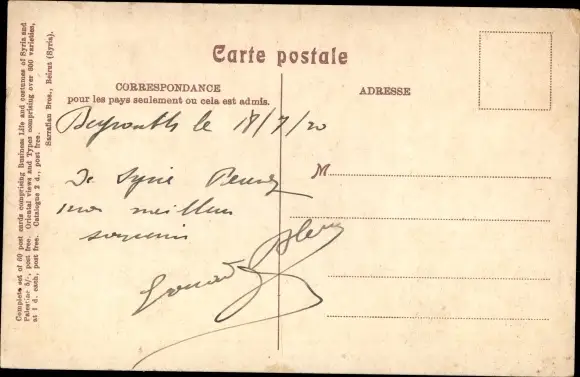 Carte postale
CORRESPONDANCE
pour les pays seulement ou cela est admis.
ADRESSE
Beyrouth le 18/7/20
De Syrie
mes meilleurs
souvenirs
M
Complete set of 60 post cards comprising Business Life and costumes of Syria and
Palestine 5/, post free. Oriental views and Types comprising over 600 varieties,
at 1 d. each, post free. Catalogue 2 d., post free.
Sarrafian Bros., Beirut (Syria).